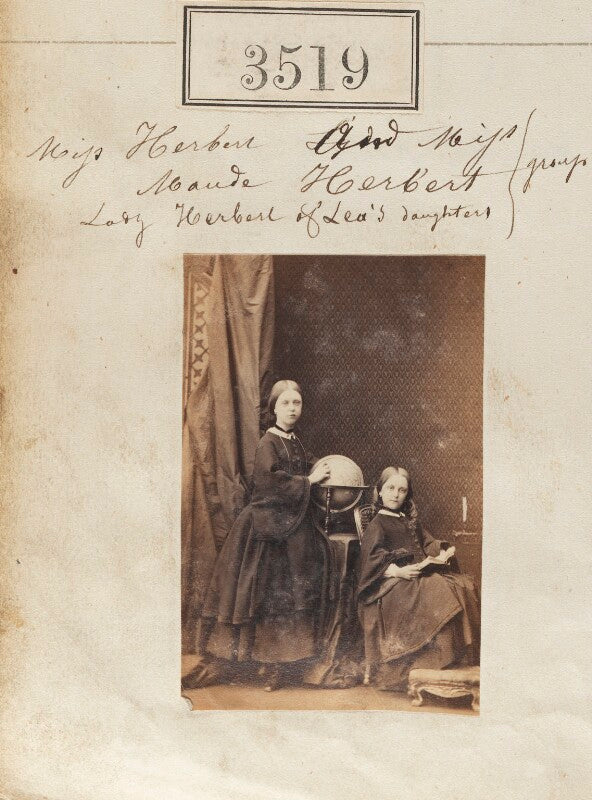 3519
Miss Herbert And Miss
Maude Herbert
Lady Herbert of Lea's daughters
group